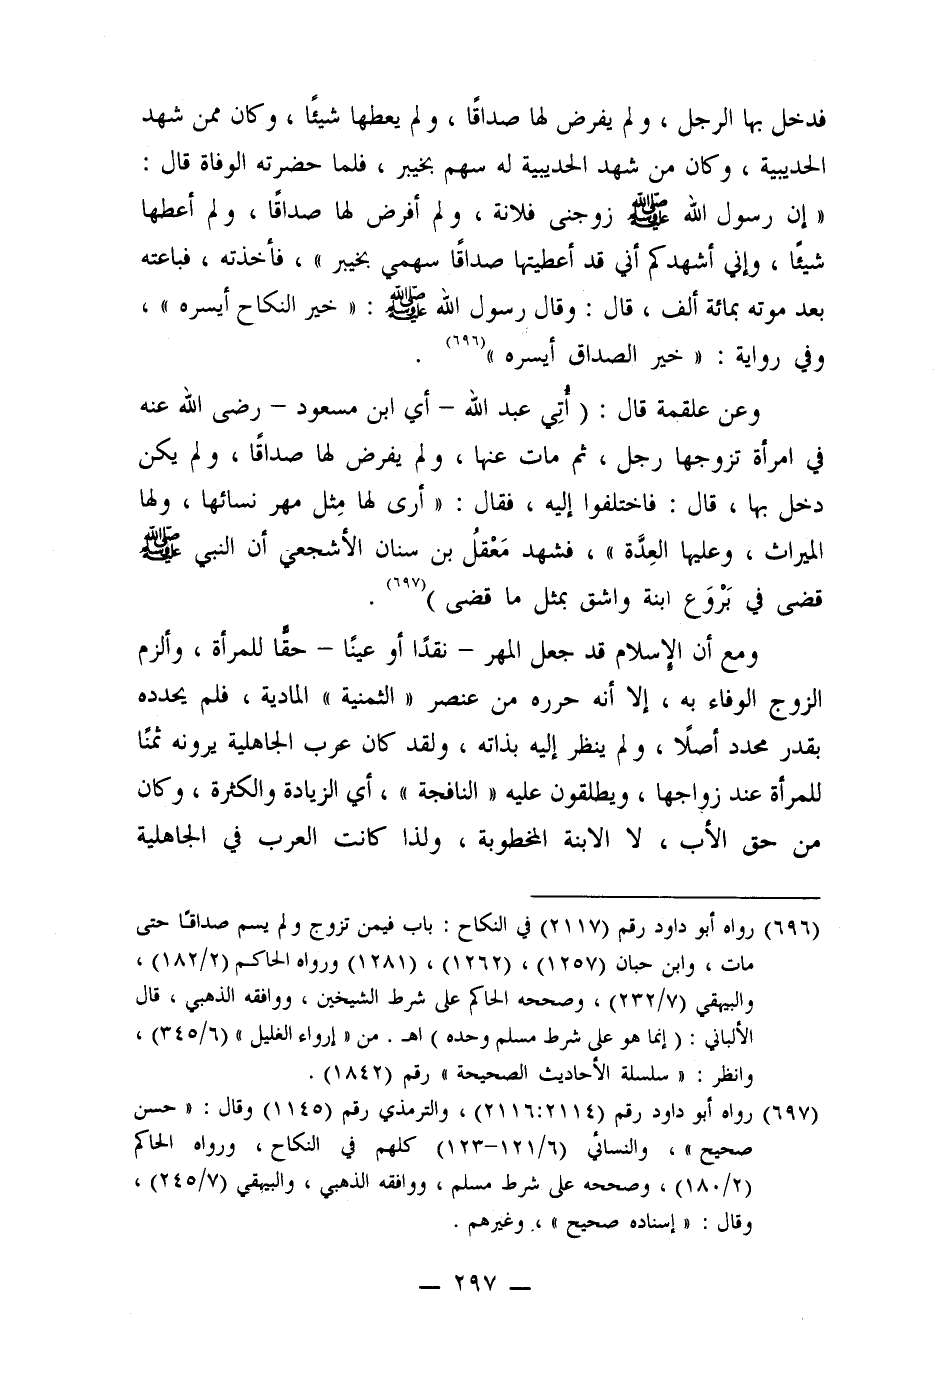 فدخل بها الرجل ، ولم يفرض لها صداقًا ، ولم يعطها شيئًا ، وكان ممن شهد
الحديبية ، وكان من شهد الحديبية له سهم بخيبر ، فلما حضرته الوفاة قال :
« إن رسول الله ﷺ زوجنى فلانة ، ولم أفرض لها صداقًا ، ولم أعطها
شيئًا ، وإني أشهدكم أني قد أعطيتها صداقًا سهمي بخيبر » ، فأخذته ، فباعته
بعد موته بمائة ألف ، قال : وقال رسول الله ﷺ : « خير النكاح أيسره » ،
وفي رواية : « خير الصداق أيسره »(٦٩٦) .
وعن علقمة قال : ( أُتِي عبد الله – أي ابن مسعود – رضى الله عنه
في امرأة تزوجها رجل ، ثم مات عنها ، ولم يفرض لها صداقًا ، ولم يكن
دخل بها ، قال : فاختلفوا إليه ، فقال : « أرى لها مِثل مهر نسائها ، ولها
الميراث ، وعليها العِدَّة » ، فشهد مَعْقلُ بن سنان الأشجعي أن النبي ﷺ
قضى في بَرْوَع ابنة واشق بمثل ما قضى )(٦٩٧) .
ومع أن الإسلام قد جعل المهر – نقدًا أو عينًا – حقًّا للمرأة ، وألزم
الزوج الوفاء به ، إلا أنه حرره من عنصر « الثمنية » المادية ، فلم يحدده
بقدر محدد أصلًا ، ولم ينظر إليه بذاته ، ولقد كان عرب الجاهلية يرونه ثمنًا
للمرأة عند زواجها ، ويطلقون عليه « النافجة » ، أي الزيادة والكثرة ، وكان
من حق الأب ، لا الابنة المخطوبة ، ولذا كانت العرب في الجاهلية
(٦٩٦) رواه أبو داود رقم (٢١١٧) في النكاح : باب فيمن تزوج ولم يسم صداقًا حتى
مات ، وابن حبان (١٢٥٧) ، (١٢٦٢) ، (١٢٨١) ورواه الحاكم (١٨٢/٢) ،
والبيهقي (٢٣٢/٧) ، وصححه الحاكم على شرط الشيخين ، ووافقه الذهبي ، قال
الألباني : ( إنما هو على شرط مسلم وحده ) اهـ . من « إرواء الغليل » (٣٤٥/٦) ،
وانظر : « سلسلة الأحاديث الصحيحة » رقم (١٨٤٢) .
(٦٩٧) رواه أبو داود رقم (٢١١٤:٢١١٦) ، والترمذي رقم (١١٤٥) وقال : « حسن
صحيح » ، والنسائي (١٢١/٦–١٢٣) كلهم في النكاح ، ورواه الحاكم
(١٨٠/٢) ، وصححه على شرط مسلم ، ووافقه الذهبي ، والبيهقي (٢٤٥/٧) ،
وقال : « إسناده صحيح » ، وغيرهم .
– ٢٩٧ –